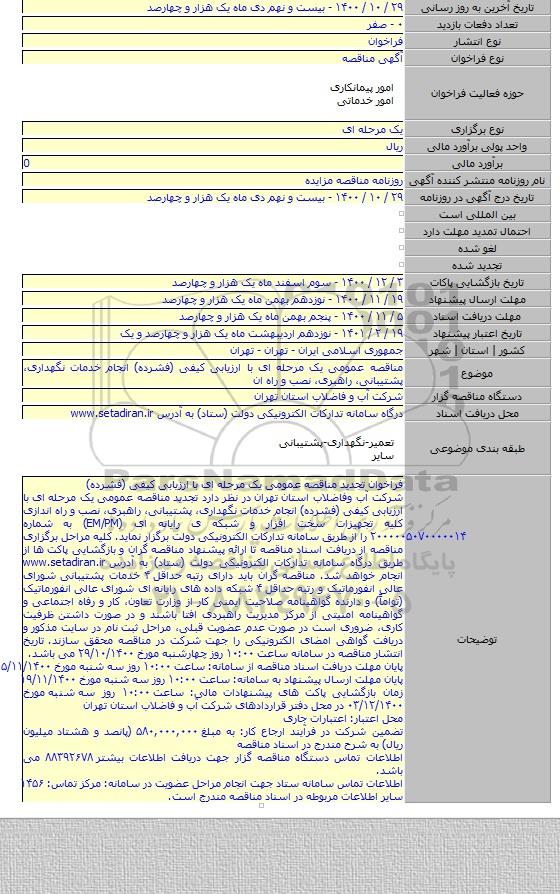 تاریخ آخرین به روز رسانی ۲۹ / ۱۰ / ۱۴۰۰ - بیست و نهم دی ماه یک هزار و چهارصد
تعداد دفعات بازدید ۰ - صفر
نوع انتشار فراخوان
نوع فراخوان آگهی مناقصه
حوزه فعالیت فراخوان
امور پیمانکاری
امور خدماتی
نوع برگزاری یک مرحله ای
واحد پولی برآورد مالی ریال
برآورد مالی 0
نام روزنامه منتشر کننده آگهی روزنامه مناقصه مزایده
تاریخ درج آگهی در روزنامه ۲۹ / ۱۰ / ۱۴۰۰ - بیست و نهم دی ماه یک هزار و چهارصد
بین المللی است
احتمال تمدید مهلت دارد
لغو شده
تجدید شده
تاریخ بازگشایی پاکات ۳ / ۱۲ / ۱۴۰۰ - سوم اسفند ماه یک هزار و چهارصد
مهلت ارسال پیشنهاد ۱۹ / ۱۱ / ۱۴۰۰ - نوزدهم بهمن ماه یک هزار و چهارصد
مهلت دریافت اسناد ۵ / ۱۱ / ۱۴۰۰ - پنجم بهمن ماه یک هزار و چهارصد
تاریخ اعتبار پیشنهاد ۱۹ / ۲ / ۱۴۰۱ - نوزدهم اردیبهشت ماه یک هزار و چهارصد و یک
کشور | استان | شهر جمهوری اسلامی ایران - تهران - تهران
موضوع
مناقصه عمومی یک مرحله ای با ارزیابی کیفی (فشرده) انجام خدمات نگهداری،
پشتیبانی، راهبری، نصب و راه ان
دستگاه مناقصه گزار شرکت آب و فاضلاب استان تهران
محل دریافت اسناد درگاه سامانه تدارکات الکترونیکی دولت (ستاد) به آدرس www.setadiran.ir
طبقه بندی موضوعی
تعمیر-نگهداری-پشتیبانی
سایر
توضیحات
فراخوان تجدید مناقصه عمومی یک مرحله ای با ارزیابی کیفی (فشرده)
شرکت آب وفاضلاب استان تهران در نظر دارد تجدید مناقصه عمومی یک مرحله ای با
ارزیابی کیفی (فشرده) انجام خدمات نگهداری، پشتیبانی، راهبری، نصب و راه اندازی
کلیه تجهیزات سخت افزار و شبکه و رایانه ای (EM/PM) به شماره
۲۰۰۰۰۰۵۰۷۰۰۰۰۰۱۴ را از طریق سامانه تدارکات الکترونیکی دولت برگزار نماید. کلیه مراحل برگزاری
مناقصه از دریافت اسناد مناقصه تا ارائه پیشنهاد مناقصه گران و بازگشایی پاکت ها از
طریق درگاه سامانه تدارکات الکترونیکی دولت (ستاد) به آدرس www.setadiran.ir
انجام خواهد شد. مناقصه گران باید دارای رتبه حداقل ۴ خدمات پشتیبانی شورای
عالی انفورماتیک و رتبه حداقل ۴ شبکه داده های رایانه ای شورای عالی انفورماتیک
(توأماً) و دارنده گواهینامه صلاحیت ایمنی کار از وزارت تعاون، کار و رفاه اجتماعی و
گواهینامه امنیتی از مرکز مدیریت راهبردی افتا باشند و در صورت داشتن ظرفیت
کاری، ضروری است در صورت عدم عضویت قبلی، مراحل ثبت نام در سایت مذکور و
دریافت گواهی امضای الکترونیکی را جهت شرکت در مناقصه محقق سازند. تاریخ
انتشار مناقصه در سامانه ساعت ۱۰:۰۰ روز چهارشنبه مورخ ۲۹/۱۰/۱۴۰۰ می باشد.
پایان مهلت دریافت اسناد مناقصه از سامانه: ساعت ۱۰:۰۰ روز سه شنبه مورخ ۵/۱۱/۱۴۰۰
پایان مهلت ارسال پیشنهاد به سامانه: ساعت ۱۰:۰۰ روز سه شنبه مورخ ۱۹/۱۱/۱۴۰۰
زمان بازگشایی پاکت های پیشنهادات مالی: ساعت ۱۰:۰۰ روز سه شنبه مورخ
۰۳/۱۲/۱۴۰۰ در محل دفتر قراردادهای شرکت آب و فاضلاب استان تهران
محل اعتبار: اعتبارات جاری
تضمین شرکت در فرآیند ارجاع کار: به مبلغ ۵۸۰,۰۰۰,۰۰۰ (پانصد و هشتاد میلیون
ریال) به شرح مندرج در اسناد مناقصه
اطلاعات تماس دستگاه مناقصه گزار جهت دریافت اطلاعات بیشتر ۸۸۳۹۲۶۷۸ می
باشد.
اطلاعات تماس سامانه ستاد جهت انجام مراحل عضویت در سامانه: مرکز تماس: ۱۴۵۶
سایر اطلاعات مربوطه در اسناد مناقصه مندرج است.